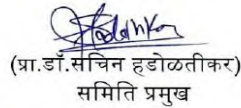 (प्रा.डॉ.सचिन हडोळतीकर)
समिति प्रमुख